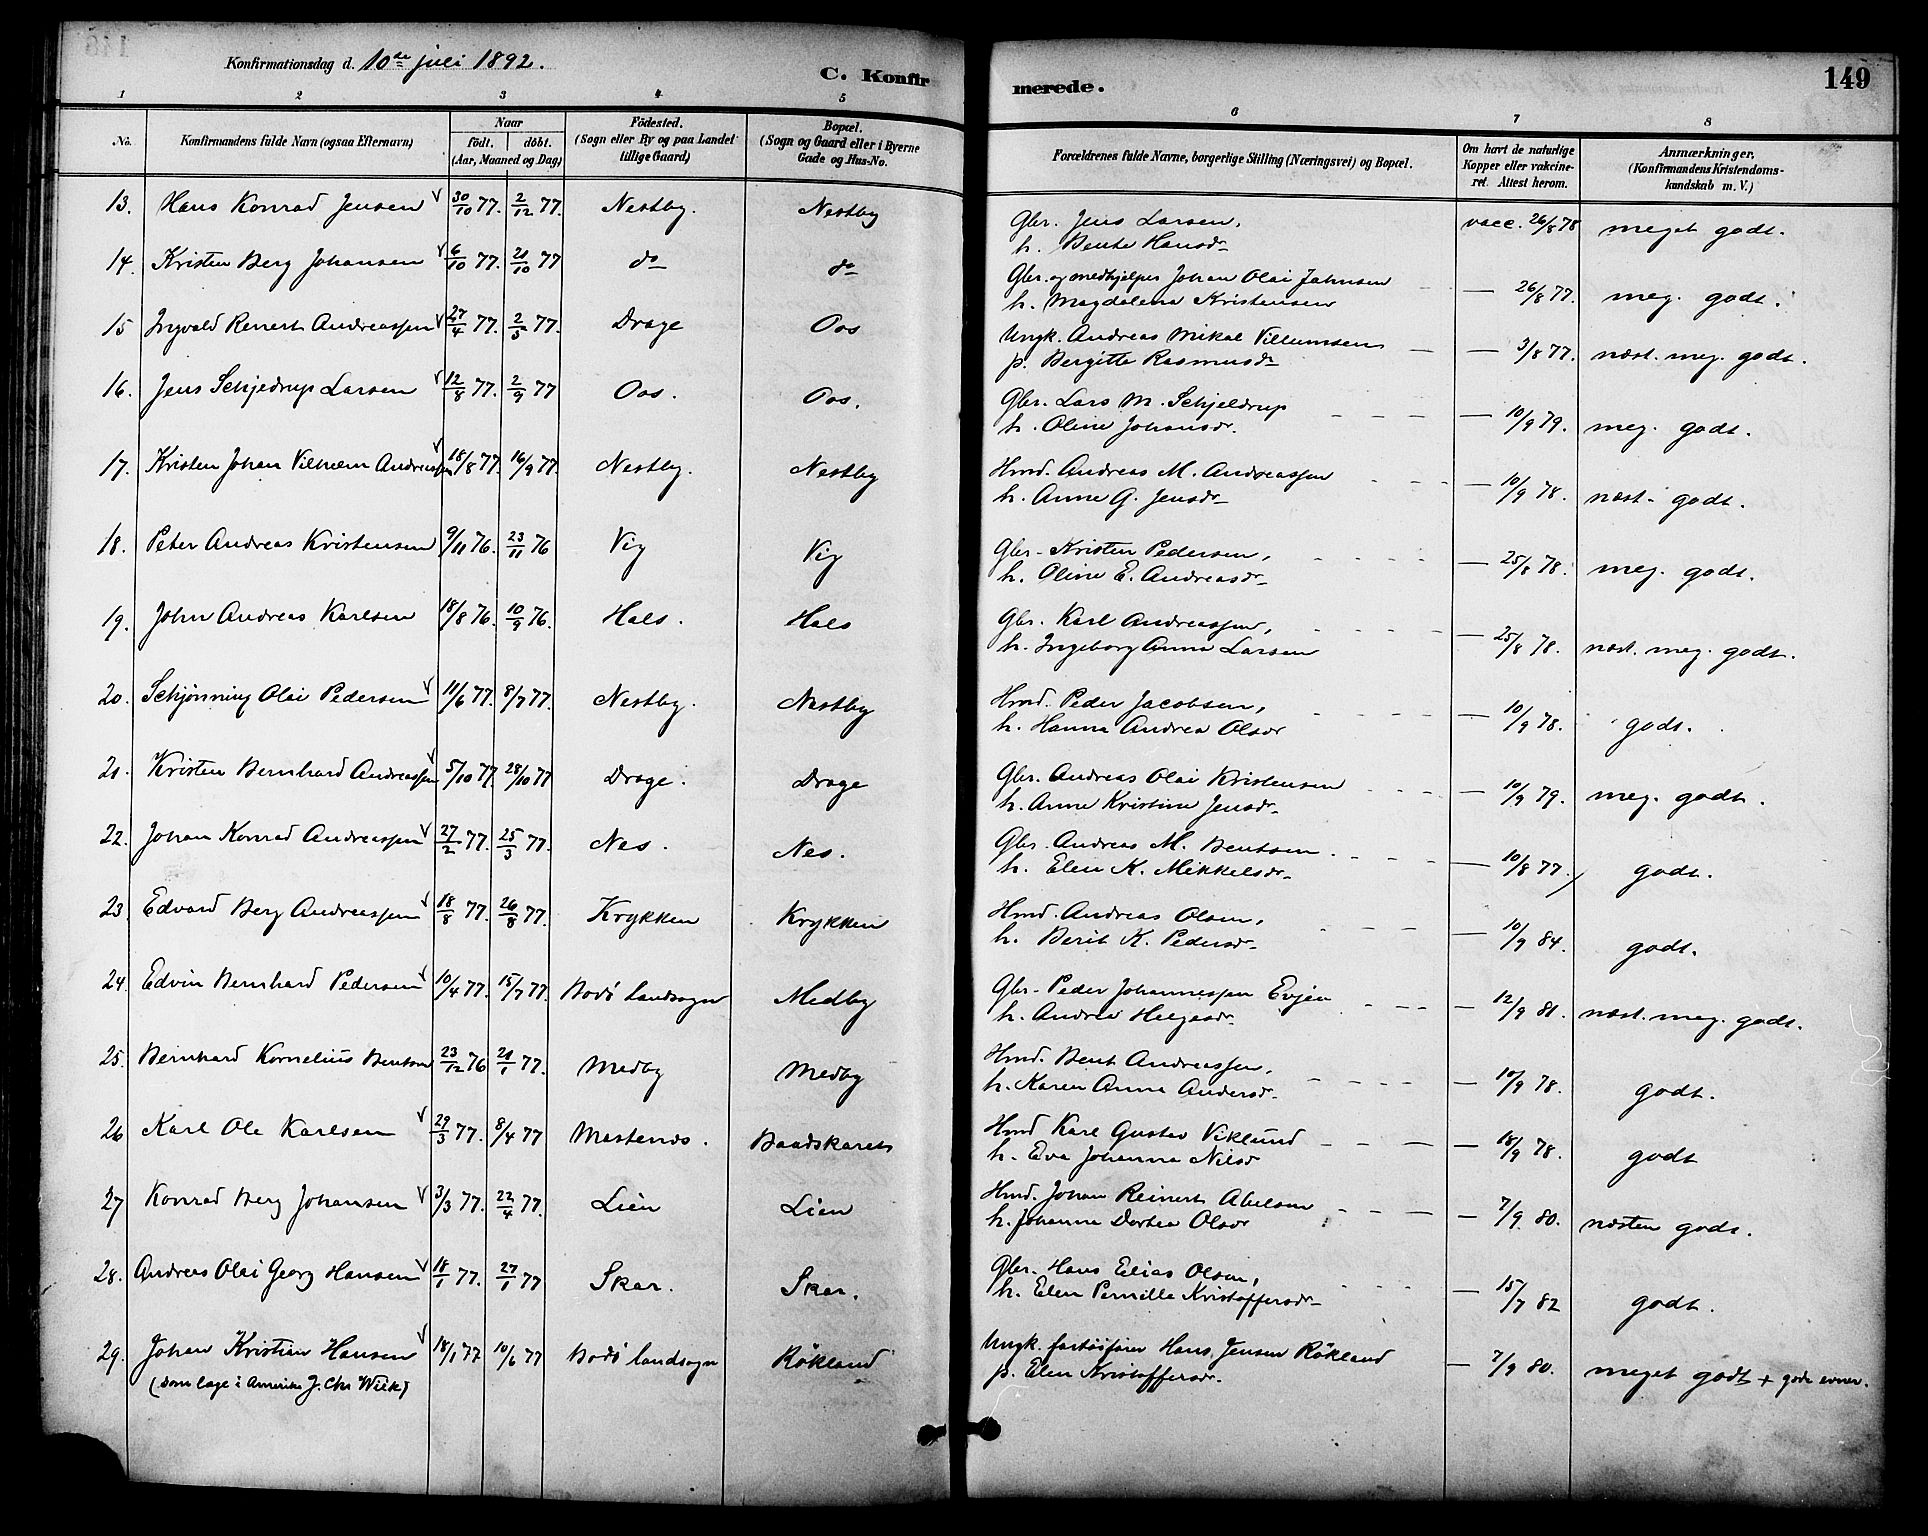 Konfirmationsdag d. 10de juli 1892.
C. Konfir
merede.
149
1 2 3 4 5 6 7 8
No. Konfirmandens fulde Navn (ogsaa Efternavn) Naar født. døbt. (Aar, Maaned og Dag) Fødested. (Sogn eller By og paa Landet tillige Gaard) Bopæl. (Sogn og Gaard eller i Byerne Gade og Hus-No. Forældrenes fulde Navne, borgerlige Stilling (Næringsvei) og Bopæl. Om havt de naturlige Kopper eller vakcineret. Attest herom. Anmærkninger, (Konfirmandens Kristendomskundskab m. V.)
13. Hans Konrad Jensen v 30/10 77. 2/12 77. Nestby. Nestby Gbr. Jens Larsen, vacc. 26/8 78 meget godt.
h. Bente Hansdr
14. Kristen Berg Johansen v 6/10 77. 21/10 77 do do Gbr. og medhjelper Johan Olai Jahnsen — 26/8 77. meg. godt.
h. Magdalena Kristensen
15 Ingvald Renert Andreassen v 27/4 77. 2/5 77. Drage Oos Ungk. Andreas Mikal Villumsen — 3/8 77. næst. meg. godt.
p. Bergitte Rasmusdr
16. Jens Schjedrup Larsen v 12/8 77. 2/9 77 Oos. Oos. Gbr. Lars M. Schjeldrup — 10/9 79. meg. godt.
h. Oline Johansdr.
17. Kristen Johan Vilhelm Andreassen v 18/8 77. 16/9 77. Nestby. Nestby Hmd. Andreas M. Andreassen — 10/9 78. næst- godt.
h. Anne G. Jensdr
18. Peter Andreas Kristensen 9/11 76. 23/11 76 Vig Vig Gbr. Kristen Pedersen, — 25/8 78. meg. godt.
h. Oline E. Andreasdr
19. John Andreas Karlsen 18/8 76. 10/9 76. Hals. Hals Gbr. Karl Andreassen, — 25/8 78. næst. meg. godt.
h. Ingeborg Anna Larsen
20. Schjønning Olai Pedersen v 11/6 77. 8/7 77. Nestby. Nestby Hmd. Peder Jacobsen, — 10/9 78. godt.
h. Hanna Andrea Olsdr
21. Kristen Bernhard Andreassen v 5/10 77. 28/10 77 Drage. Drage Gbr. Andreas Olai Kristensen — 10/9 79. meg. godt.
h. Anne Kristine Jensdr.
22. Johan Konrad Andreassen v 27/2 77. 25/3 77. Nes. Nes. Gbr. Andreas M. Bentsen. — 10/8 77 godt.
h. Elen K. Mikkelsdr.
23. Edvard Berg Andreassen v 18/8 77. 26/8 77. Krykken Krykken Hmd. Andreas Olsen, — 10/9 84. godt.
h. Berit K. Pedersdr
24. Edvin Bernhard Pedersen v 10/4 77. 15/7 77. Bodø landsogn Medby Gbr. Peder Johannessen Evjen — 12/9 81. næst. meg. godt.
h. Andrea Helgesdr.
25. Bernhard Kornelius Bentsen 23/12 76 21/1 77. Medby Medby Hmd. Bent Andreassen, — 10/9 78. godt.
h. Karen Anna Andersdr.
26 Karl Ole Karlsen v 29/3 77. 8/4 77 Mastenos. Baadskaret Hmd Karl Gustav Viklund — 18/9 78. godt
h. Eva Johanna Nilsdr
27 Konrad Berg Johansen v 3/3 77. 22/4 77. Lien Lien Hmd. Johan Reinert Abelsen — 7/9 80. næsten godt.
h. Johanna Dortea Olsdr
28. Andreas Olai Georg Hansen v 18/1 77. 27/1 77 Skar. Skar. Gbr. Hans Elias Olsen, — 15/7 82 godt.
h. Elen Pernille Kristoffersdr
29. Johan Kristian Hansen v 18/1 77 10/6 77 Bodø landsogn Røkland Ungk. Hans Jensen Røkland — 7/9 80. meget godt + gode evner.
(som læge i Amerika J. Chr Wiik) p. Elen Kristoffersdr.